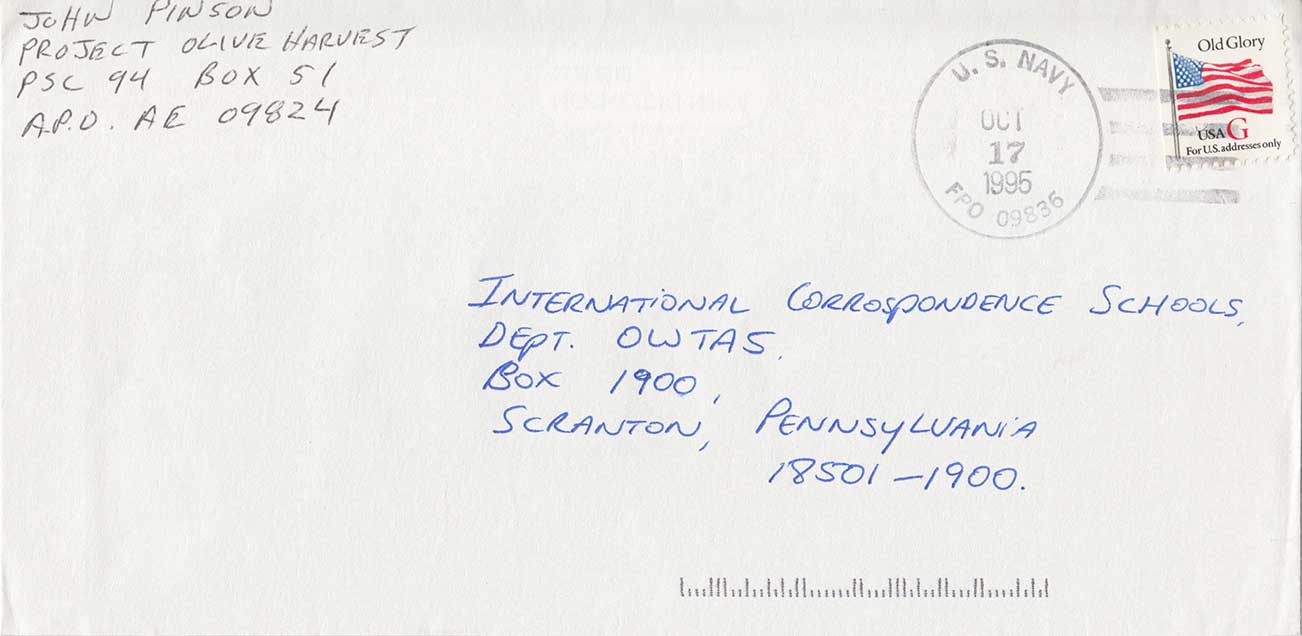 JOHN PINSON
PROJECT OLIVE HARVEST
PSC 94 BOX 51
A.P.O. AE 09824
U. S. NAVY
OCT
17
1995
FPO 09836
Old Glory
USA G
For U.S. addresses only
INTERNATIONAL CORROSPONDENCE SCHOOLS,
DEPT. OWTA5.
BOX 1900,
SCRANTON, PENNSYLVANIA
18501-1900.